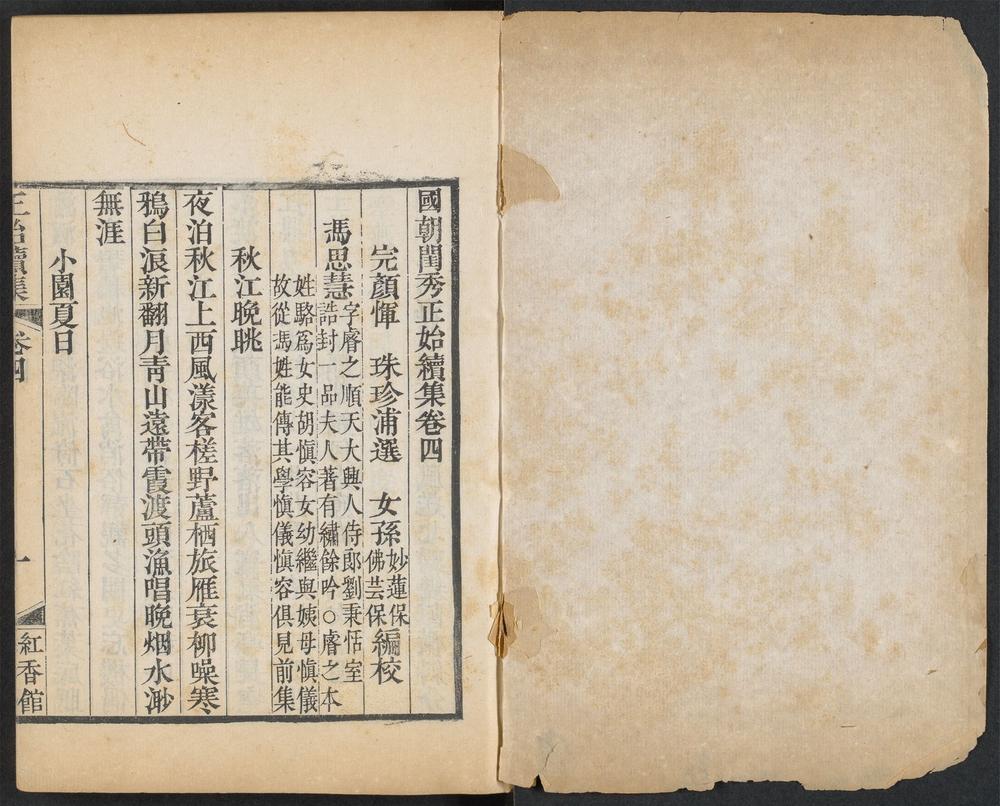 國朝閨秀正始續集卷四
完顏惲 珠珍浦選 女孫 妙蓮保 佛芸保 編校
馮思慧 字睿之順天大興人侍郎劉秉恬室
誥封一品夫人著有繡餘吟○睿之本
姓駱為女史胡慎容女幼繼與姨母慎儀
故從馮姓能傳其學慎儀慎容俱見前集
秋江晚眺
夜泊秋江上西風漾客槎野蘆栖旅雁衰柳噪寒
鴉白浪新翻月靑山遠帶霞渡頭漁唱晚烟水渺
無涯
小園夏日
正始續集 卷四 一 紅香館